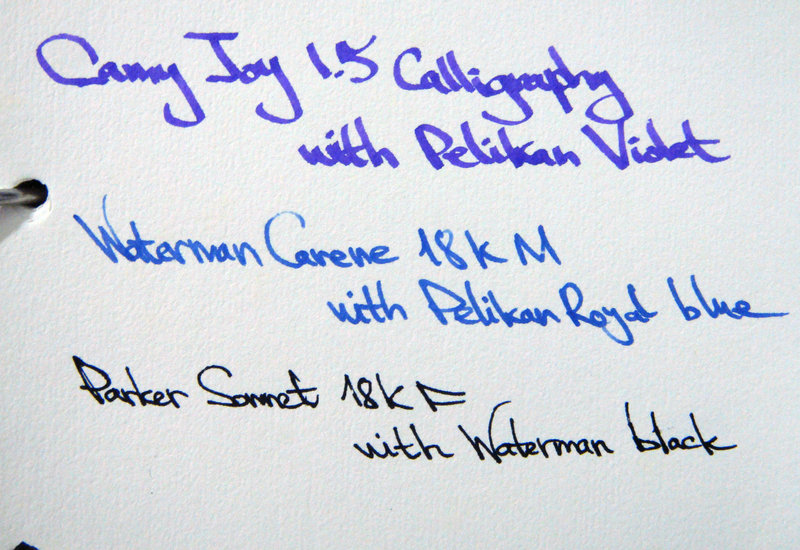 Camy Joy 1.5 Calligraphy
with Pelikan Violet
Waterman Carene 18k M
with Pelikan Royal blue
Parker Sonnet 18K F
with Waterman black